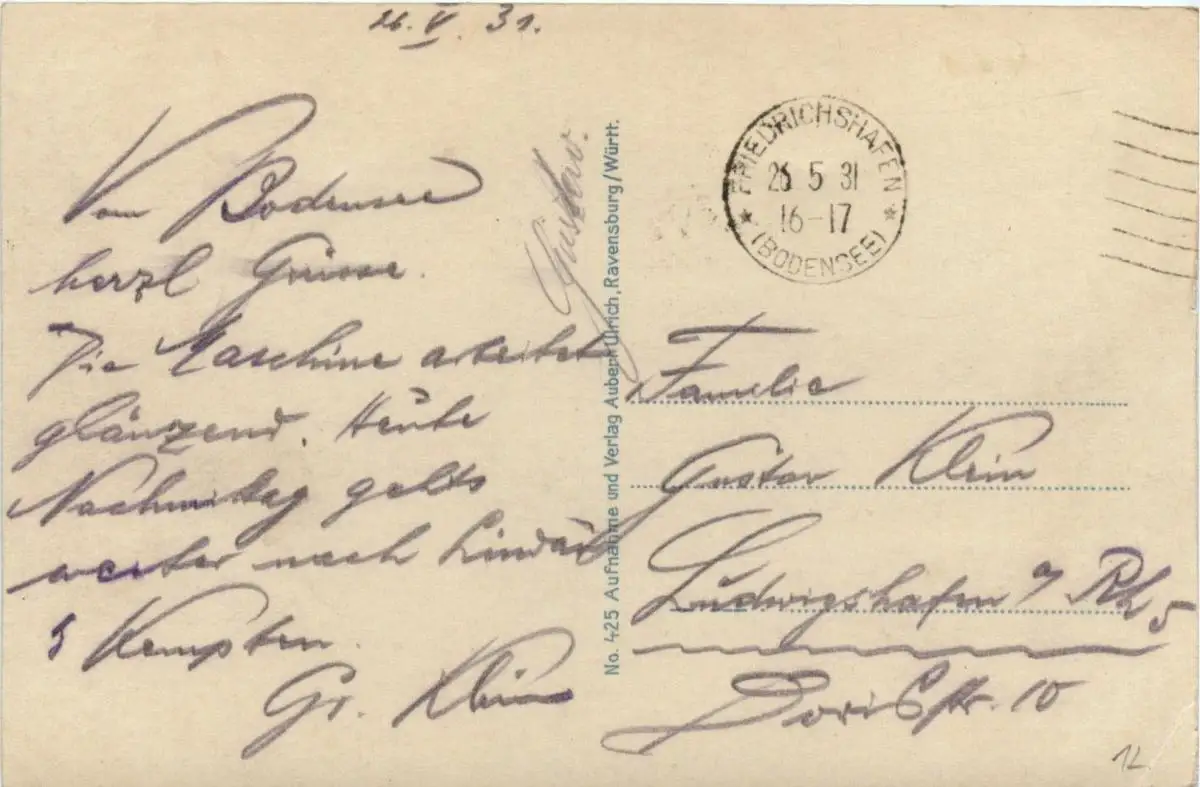 26. V. 31.
Vom Bodensee
herzl Grüsse.
Die Maschine arbeitet
glänzend. Heute
Nachmittag gehts
weiter nach Lindau
Kempten.
Gr. Klein
Gustav.
No. 425 Aufnahme und Verlag Ulrich, Ravensburg/Württ.
FRIEDRICHSHAFEN
26 5 31
16-17
(BODENSEE)
Familie
Gustav Klein
Ludwigshafen a/Rh 5
Str. 10
12